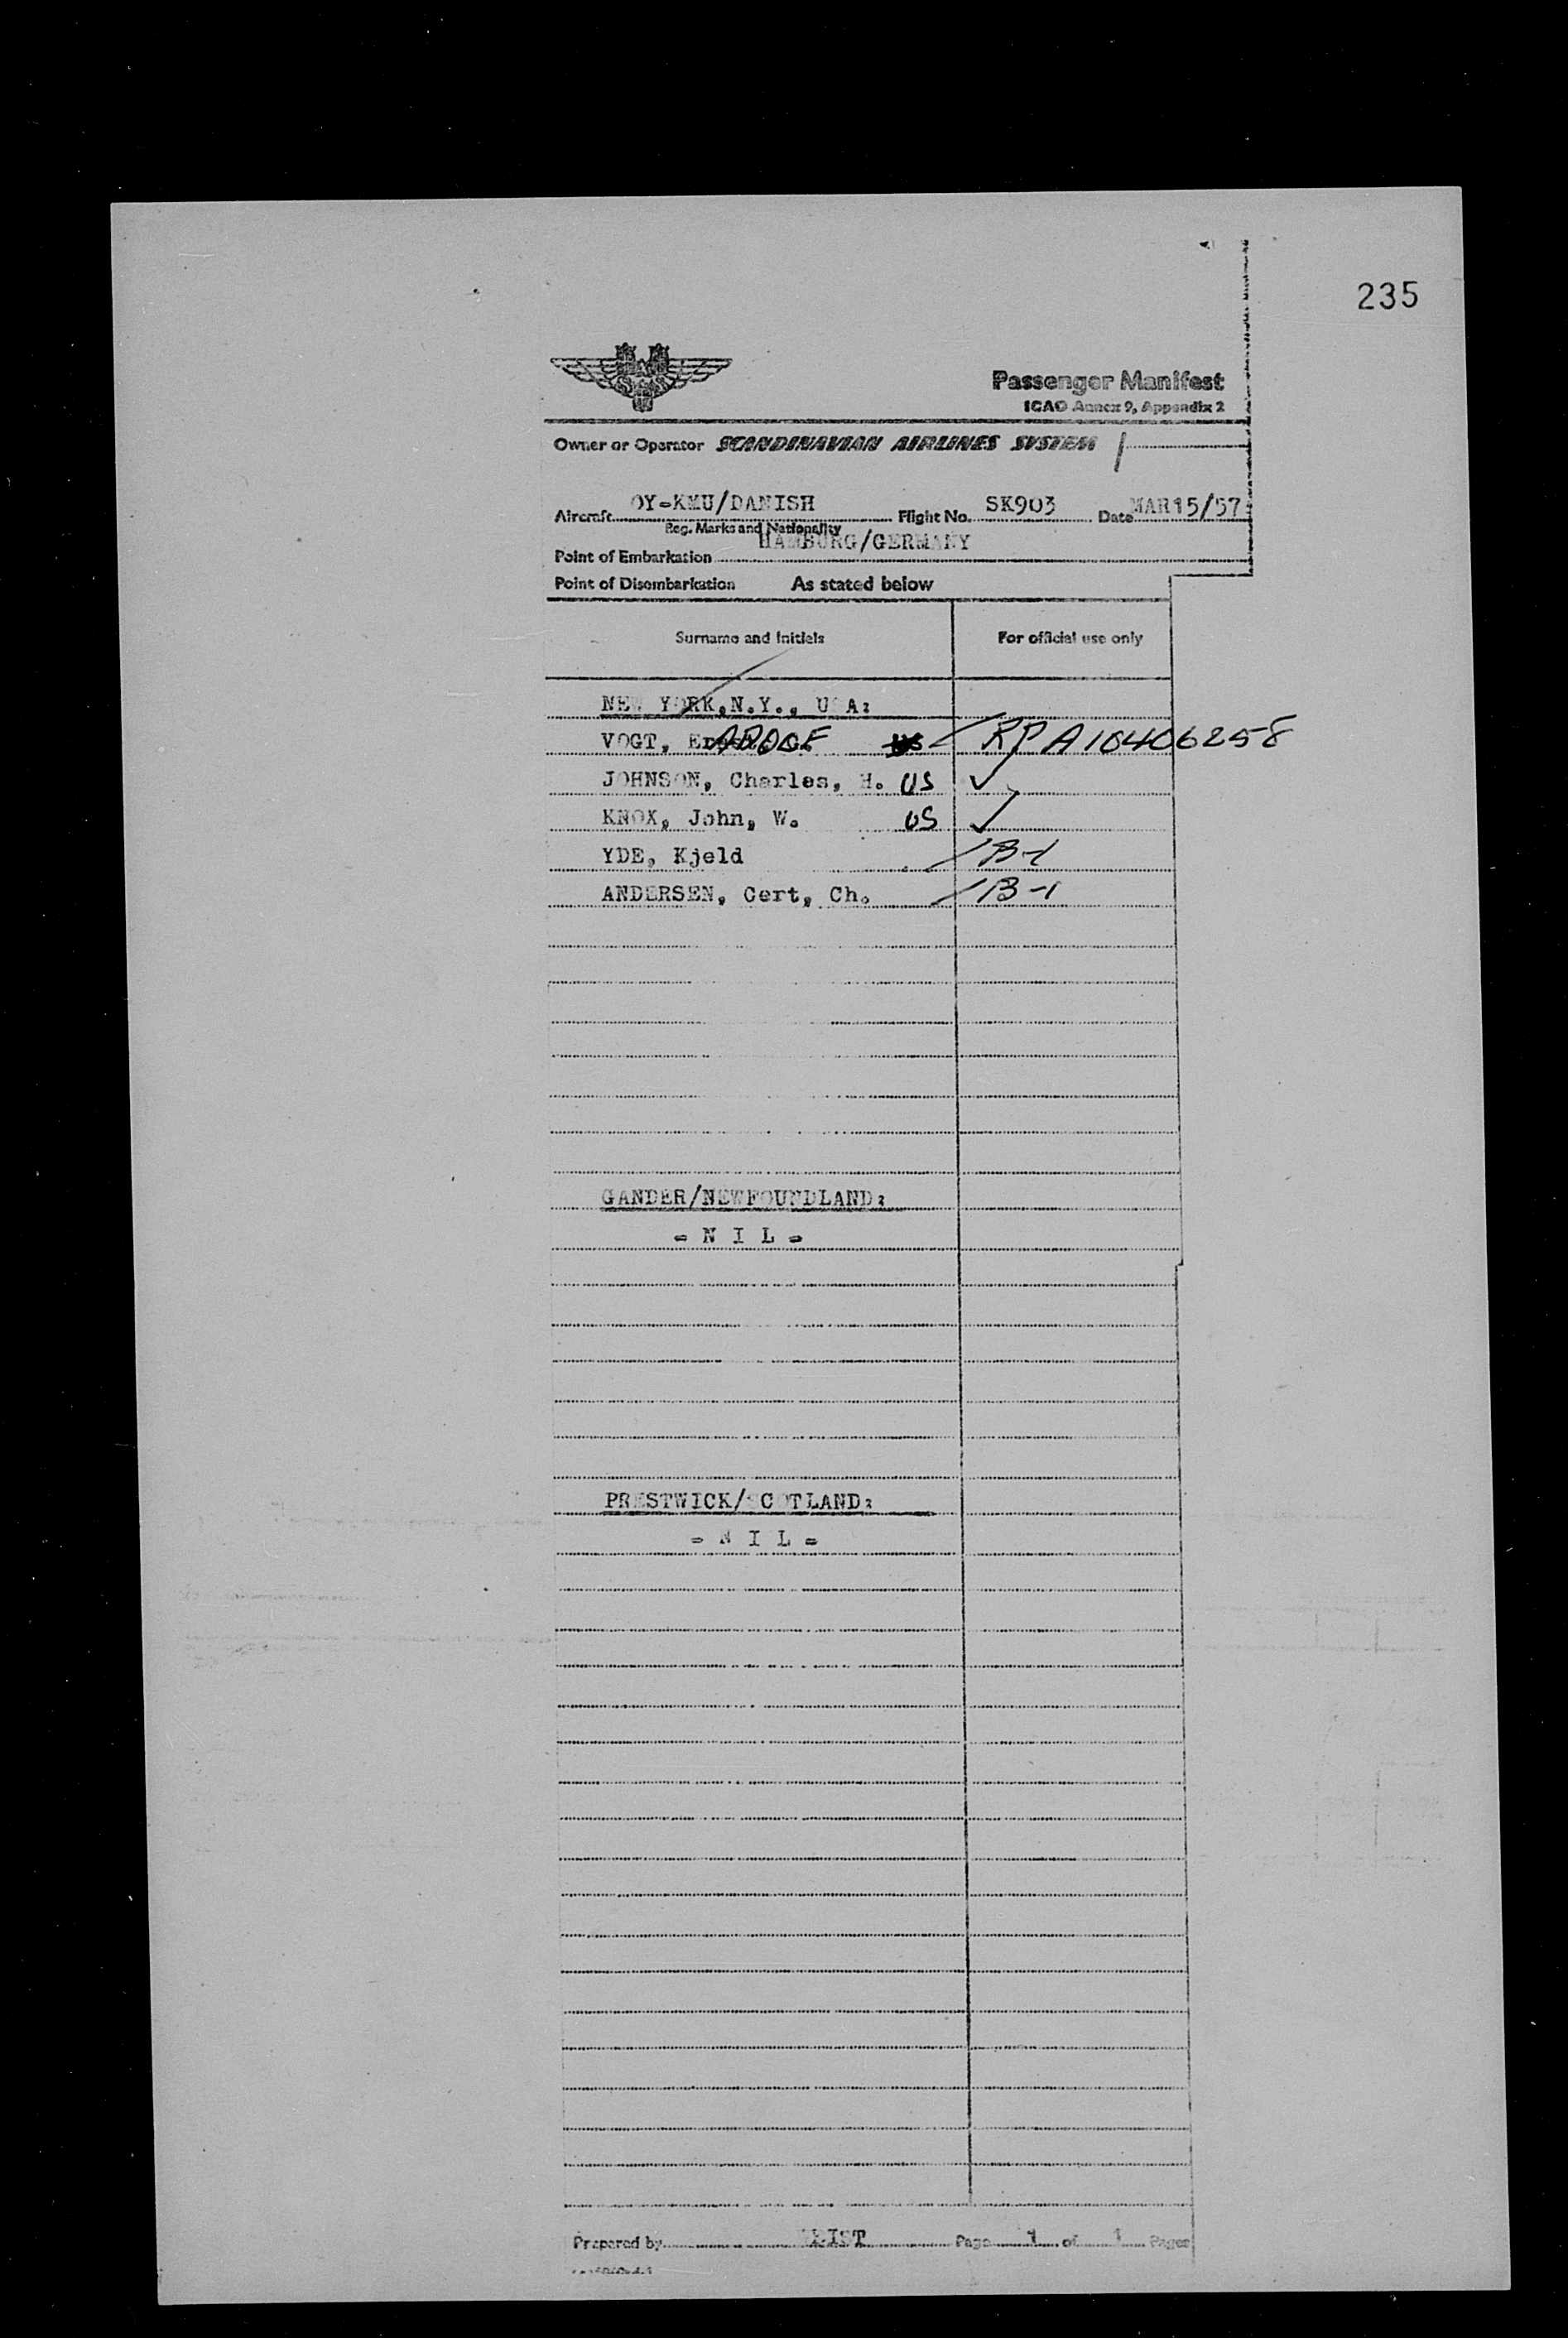 235
SAS
Passenger Manifest
ICAO Annex 9, Appendix 2
Owner or Operator SCANDINAVIAN AIRLINES SYSTEM
Aircraft OY-KMU/DANISH Flight No. SK903 Date MAR15/57
Reg. Marks and Nationality
HAMBURG/GERMANY
Point of Embarkation
Point of Disembarkation As stated below
Surname and Initials For official use only
NEW YORK,N.Y., USA:
VOGT, US RP A10406258
JOHNSON, Charles, H. US ✓
KNOX, John, W. US ✓
YDE, Kjeld B-1
ANDERSEN, Gert, Ch. B-1
GANDER/NEWFOUNDLAND:
- N I L -
PRESTWICK/SCOTLAND:
- N I L -
Prepared by Page 1 of 1 Pages